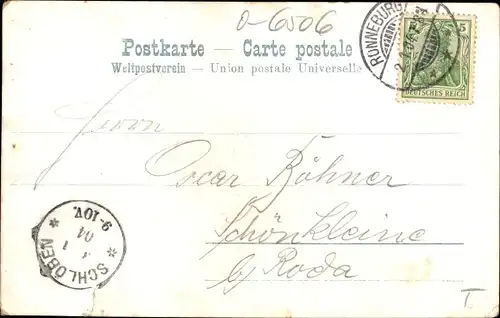 o-6506
Postkarte — Carte postale
Weltpostverein — Union postale Universelle
RONNEBURG
5
DEUTSCHES REICH
Herrn
Oscar Böhner
Schönkleine
b/ Roda
SCHLOBEN
9-10V.
T